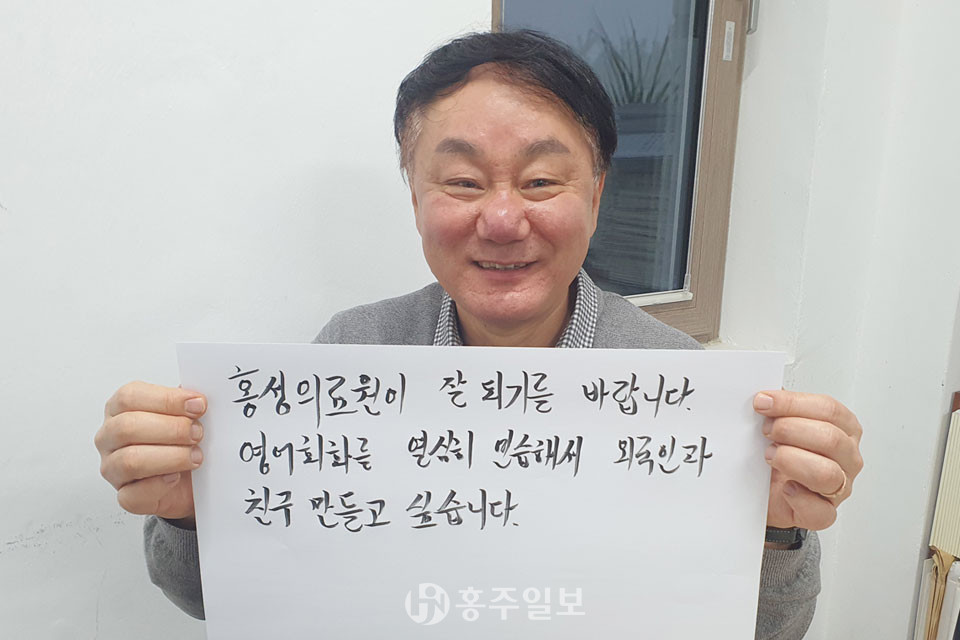 홍성의료원이 잘 되기를 바랍니다.
영어회화를 열심히 연습해서 외국인과
친구 만들고 싶습니다.
홍주일보